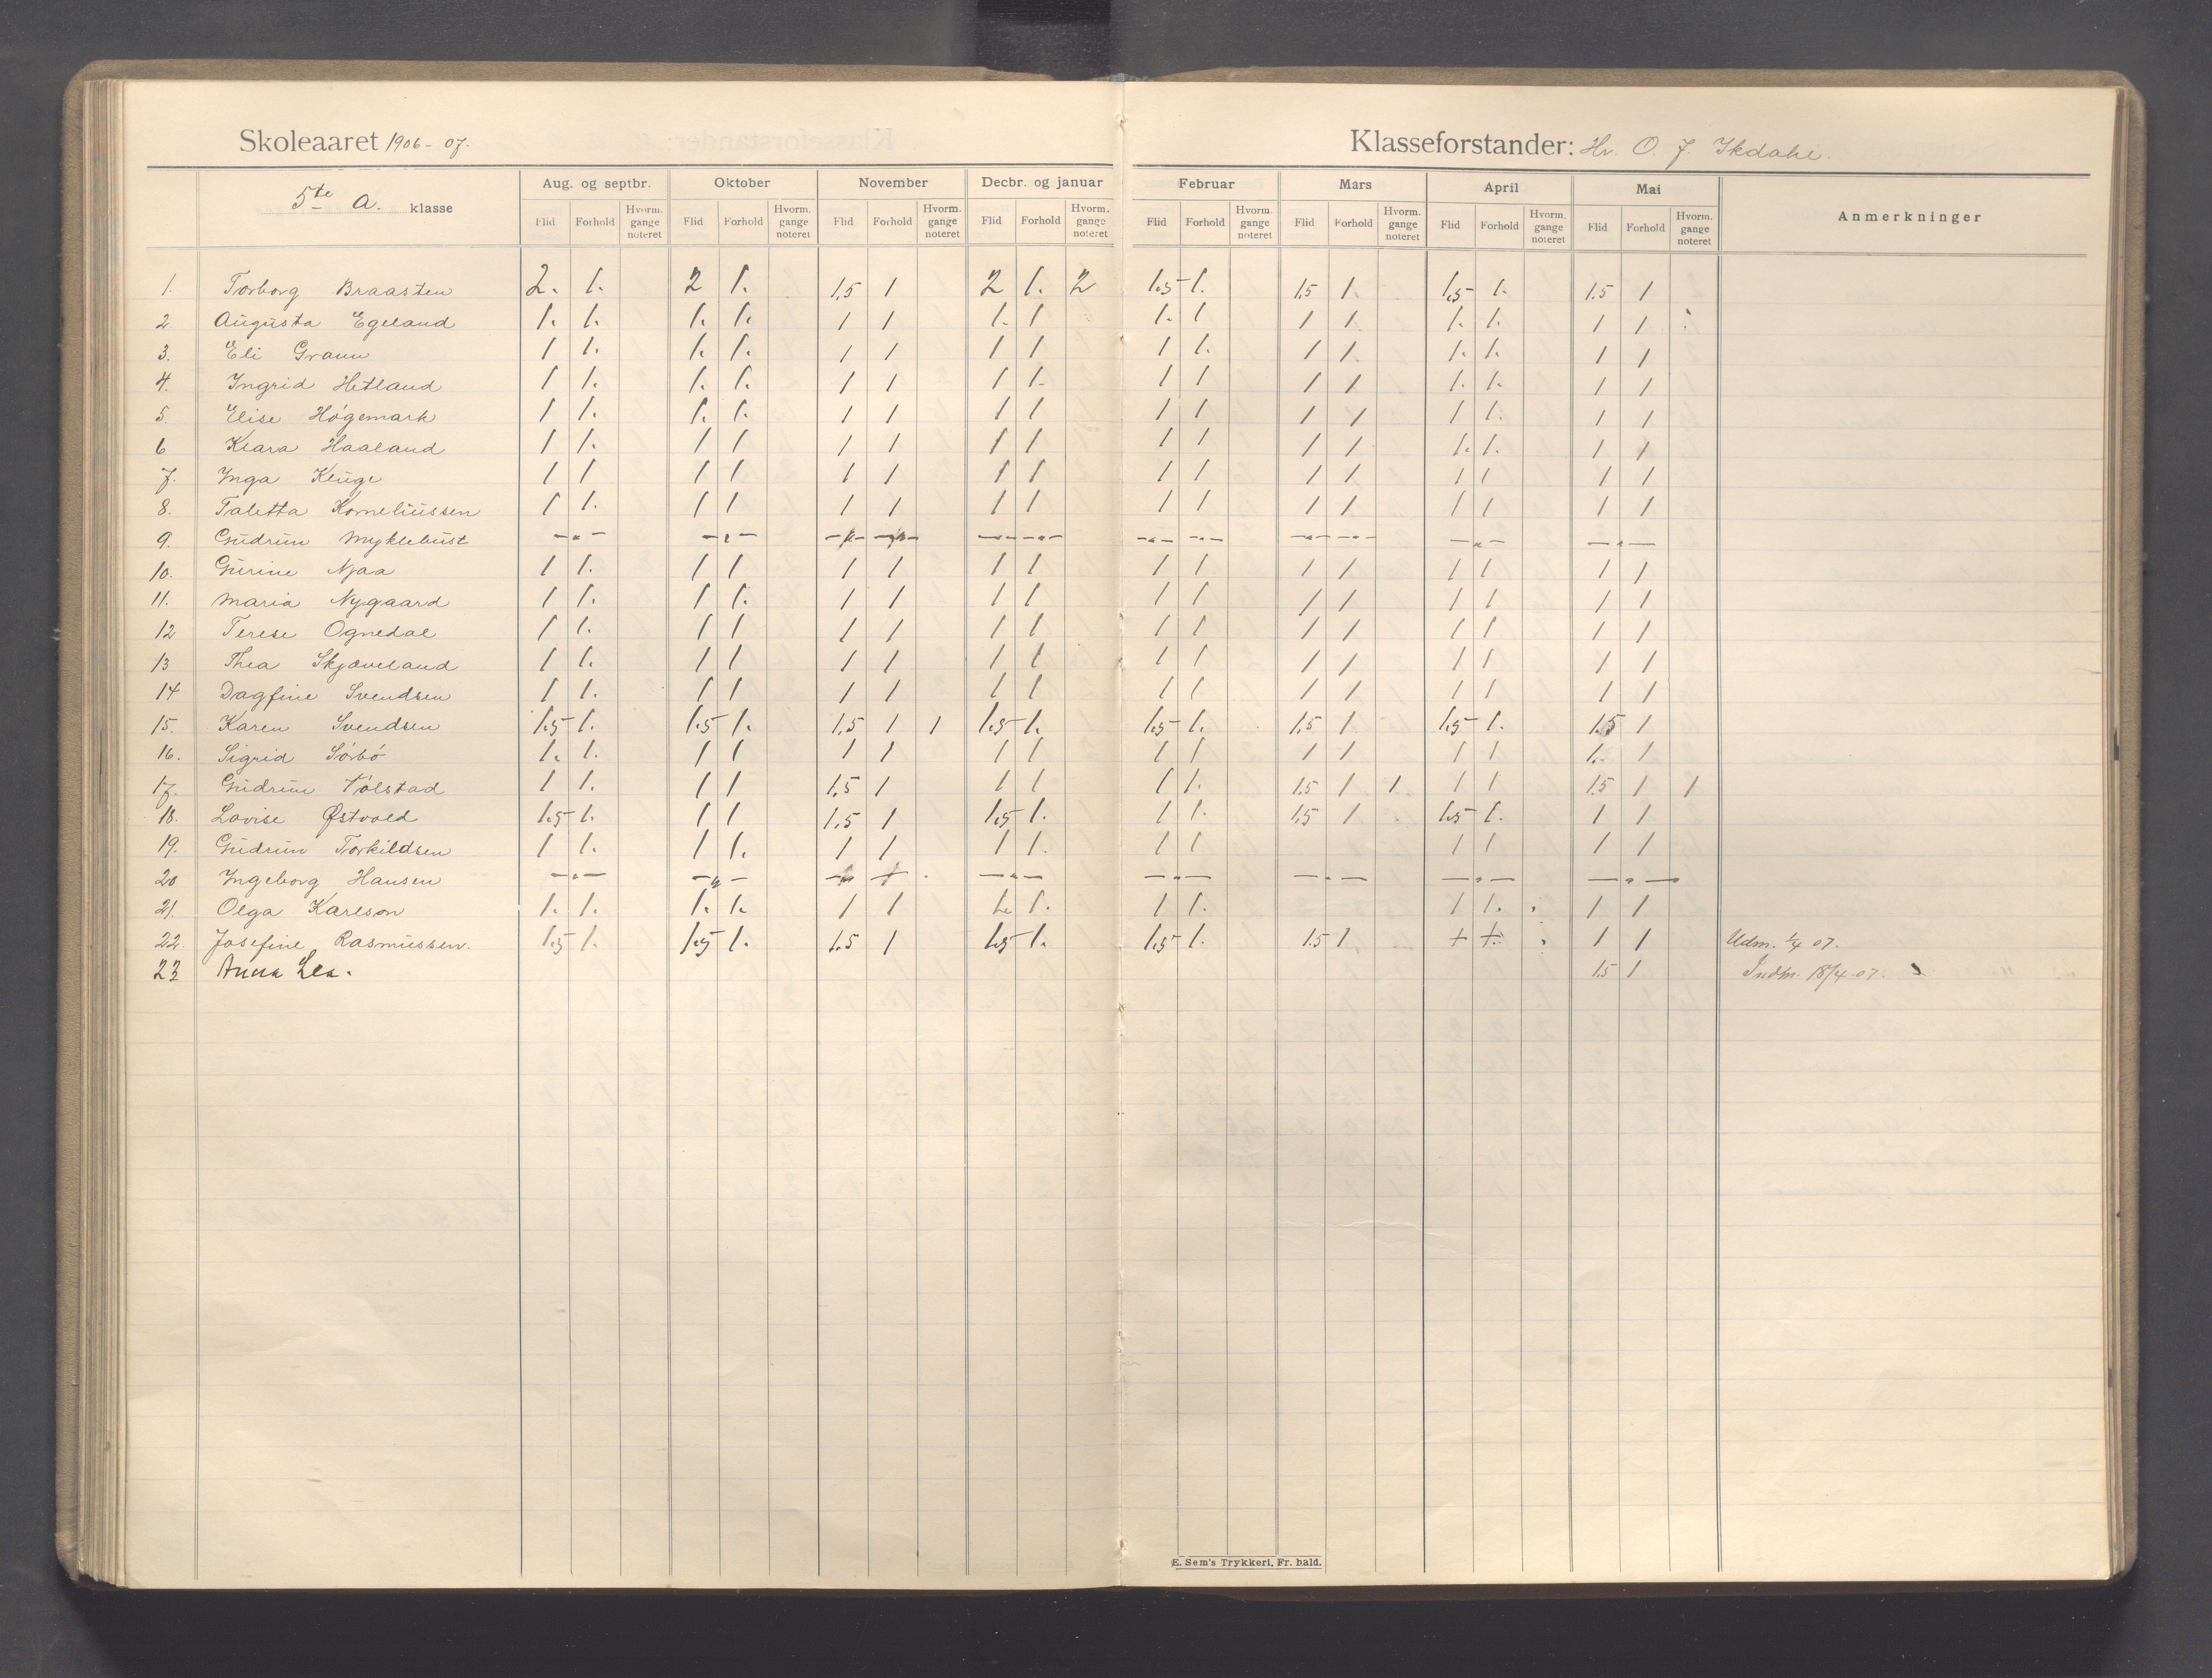 Skoleaaret 1906-07.
Klasseforstander: Hr. O. J.
5te a. klasse
Aug. og septbr. Oktober November Decbr. og januar Februar Mars April Mai Anmerkninger
Flid Forhold Hvorm. gange noteret Flid Forhold Hvorm. gange noteret Flid Forhold Hvorm. gange noteret Flid Forhold Hvorm. gange noteret Flid Forhold Hvorm. gange noteret Flid Forhold Hvorm. gange noteret Flid Forhold Hvorm. gange noteret Flid Forhold Hvorm. gange noteret
1. Torborg Braasten 2. 1. 2 1. 1,5 1 2 1. 2 1.5 1. 1,5 1. 1.5 1. 1.5 1
2. Augusta Egeland 1. 1. 1. 1. 1 1 1. 1 1. 1 1 1. 1. 1. 1 1
3. Eli Grann 1 1. 1. 1. 1 1 1 1 1 1. 1 1. 1. 1. 1 1
4. Ingrid Hetland 1 1. 1. 1. 1 1 1 1. 1 1 1 1 1. 1. 1 1
5. Elise Högemark 1 1. 1. 1. 1 1 1 1 1 1 1 1 1 1. 1 1
6 Klara Haaland 1 1. 1 1 1 1 1 1 1 1 1 1 1. 1. 1 1
7. Inga Kluge 1 1 1 1 1 1 1 1 1 1 1 1 1 1 1 1
8. Taletta Korneliussen 1 1. 1 1 1 1 1 1 1 1 1 1 1 1 1 1
9. Gudrun Myklebust — " — — " — — " — — " — — " — — " — — " — — " — — " — — " — — " — — " —
10. Gurine Njaa 1 1. 1 1 1 1 1 1 1 1 1 1 1 1 1 1
11. Maria Nygaard 1 1. 1 1. 1 1 1 1 1 1 1 1 1 1 1 1
12 Terese Ognedal 1 1. 1 1 1 1 1 1 1 1 1 1 1 1 1 1
13 Thea Skjæveland 1 1. 1 1 1 1 1 1 1 1 1 1 1 1 1 1
14 Dagfine Svendsen 1 1. 1 1 1 1 1 1 1 1 1 1 1 1 1 1
15. Karen Svendsen 1.5 1. 1.5 1. 1,5 1 1 1.5 1. 1.5 1. 1,5 1 1.5 1. 1.5 1
16. Sigrid Sörbö 1. 1. 1 1 1 1 1 1 1 1 1 1 1 1 1. 1
17. Gudrun Tölstad 1 1. 1 1 1,5 1 1 1 1 1. 1,5 1 1 1 1 1.5 1 1
18. Lovise Østvold 1.5 1. 1 1 1,5 1 1.5 1. 1 1. 1,5 1 1.5 1. 1 1
19. Gudrun Torkildsen 1 1. 1 1. 1 1 1 1. 1 1 1 1 1 1
20 Ingeborg Hansen — " — — " — — " — + — " — — " — — " — — " — — " —
21. Olga Karlson 1. 1. 1. 1. 1 1 1. 1. 1 1. 1 1. 1 1
22. Josefine Rasmussen. 1.5 1. 1.5 1. 1.5 1 1.5 1. 1.5 1. 1.5 1 + + 1 1 Udm. 1/4 07.
23 Anna Lea. 1.5 1 Indm. 18/4.07.
E. Sem's Trykkeri, Fr. hald.